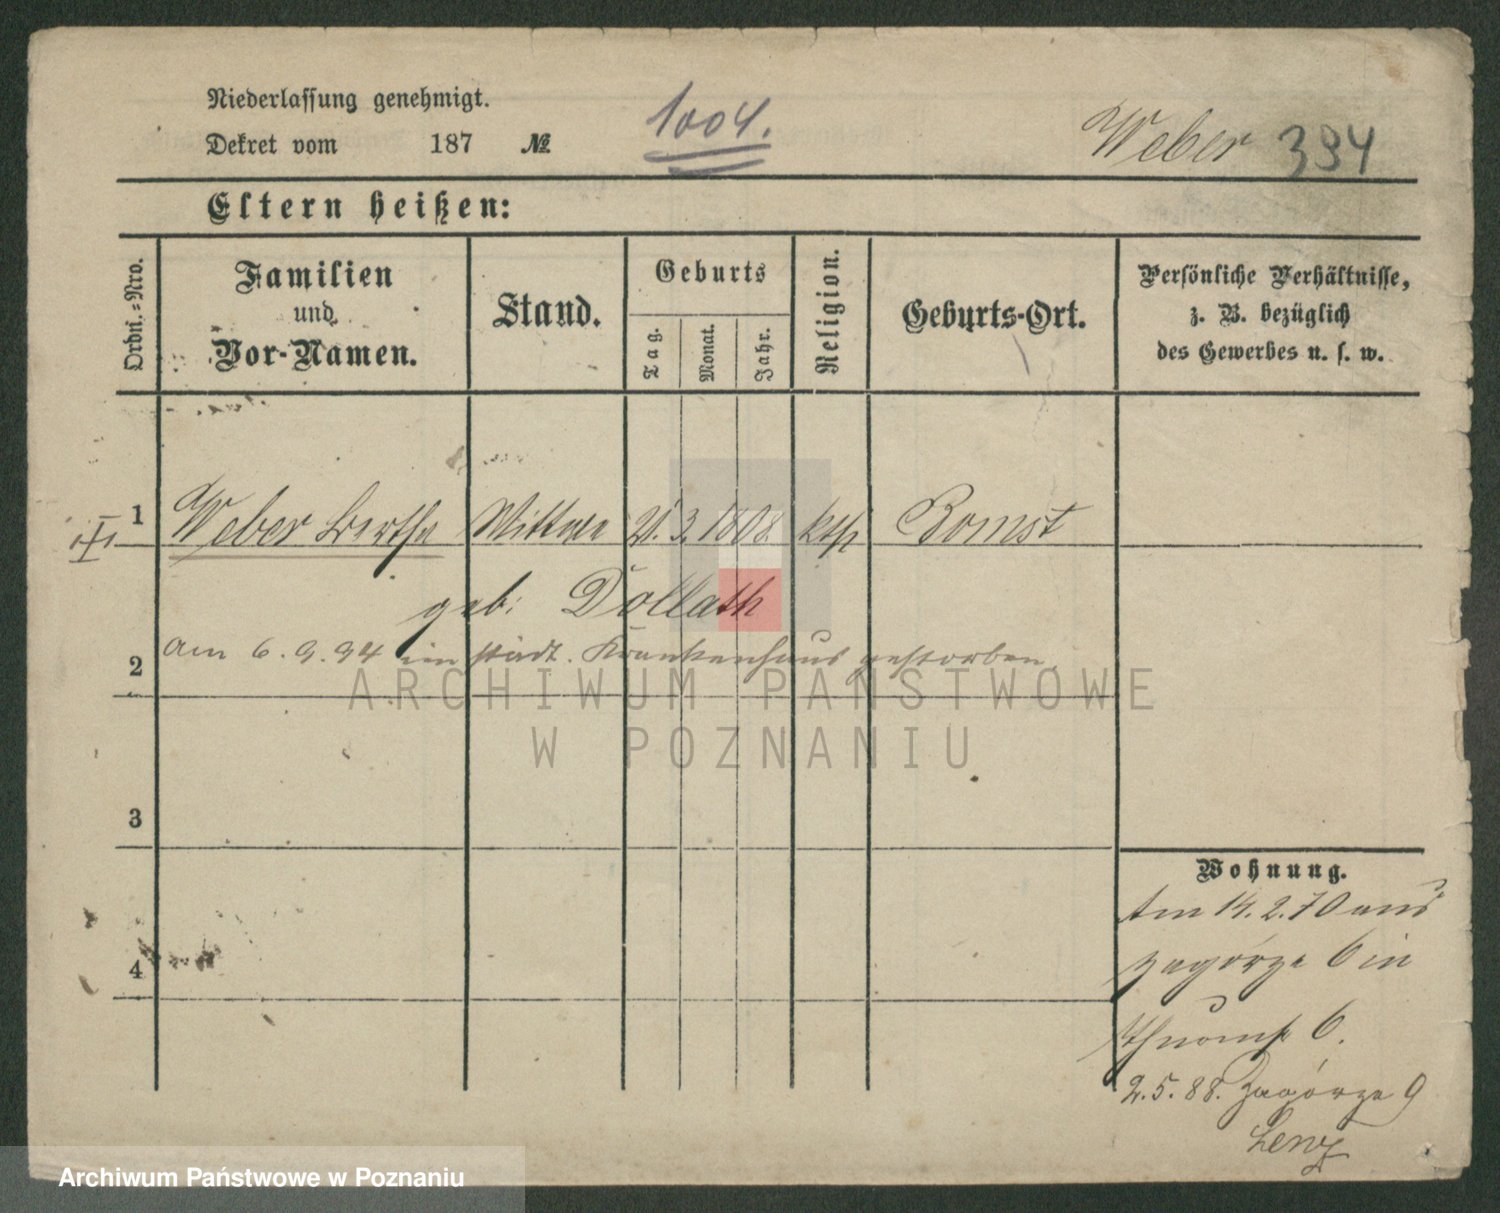 Niederlassung genehmigt.
Dekret vom 187 №
1004.
Weber 394
Eltern heißen:
Ordn.-Nro.
Familien
und
Vor-Namen.
Stand.
Geburts
Tag.
Monat.
Jahr.
Religion.
Geburts-Ort.
Persönliche Verhältnisse,
z. B. bezüglich
des Gewerbes u. s. w.
III
1 Weber Bertha Wittwe 21. 3. 1808. kth Bomst
geb: Dollath
2 am 6. 9. 94 im städt. Krankenhaus gestorben.
3
4
Wohnung.
Am 14. 2. 70 aus
Zagórze 6 in
6.
2. 5. 88. Zagórze 9
Lenz
ARCHIWUM PAŃSTWOWE
W POZNANIU
Archiwum Państwowe w Poznaniu